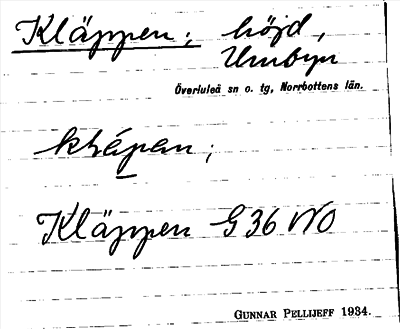 Kläppen; höjd,
Umbyn
Överluleå sn o. tg, Norrbottens län.
klápan;
Kläppen G 36 NO
GUNNAR PELLIJEFF 1934.